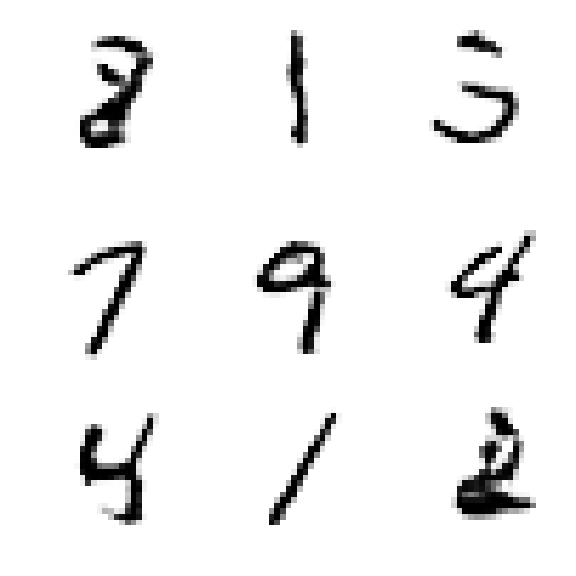 8 1 3
7 9 4
4 1 2